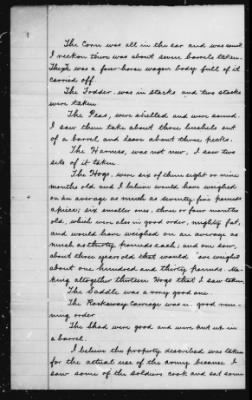 The Corn was all in the ear and was
I reckon there was about seven barrel taken.
There was a four horse wagon body full of it
carried off.
The Fodder was in stacks and two stacks
were taken
The Peas, were shelled and were sound.
I saw them take about three bushels out
of a barrel and leave about three pecks.
The Harness, was not new, I saw two
sets of it taken
The Hogs, were six of them eight or nine
months old and I believe would have weighed
on an average as much as seventy five pounds
apiece; six smaller ones, three or four months
old, which were also in good order, mighty fat,
and would have weighed on an average as
much as thirty pounds each; and one sow,
about three years old that would have weighed
about one hundred and thirty pounds. Ma-
king altogether thirteen Hogs that I saw taken
The Saddle was a very good one
The Rockaway Carriage was in good run-
ning order
The Shad were good and were put up in
a barrel.
I believe the property described was taken
for the actual use of the army because I
saw some of the soldiers cook and eat some